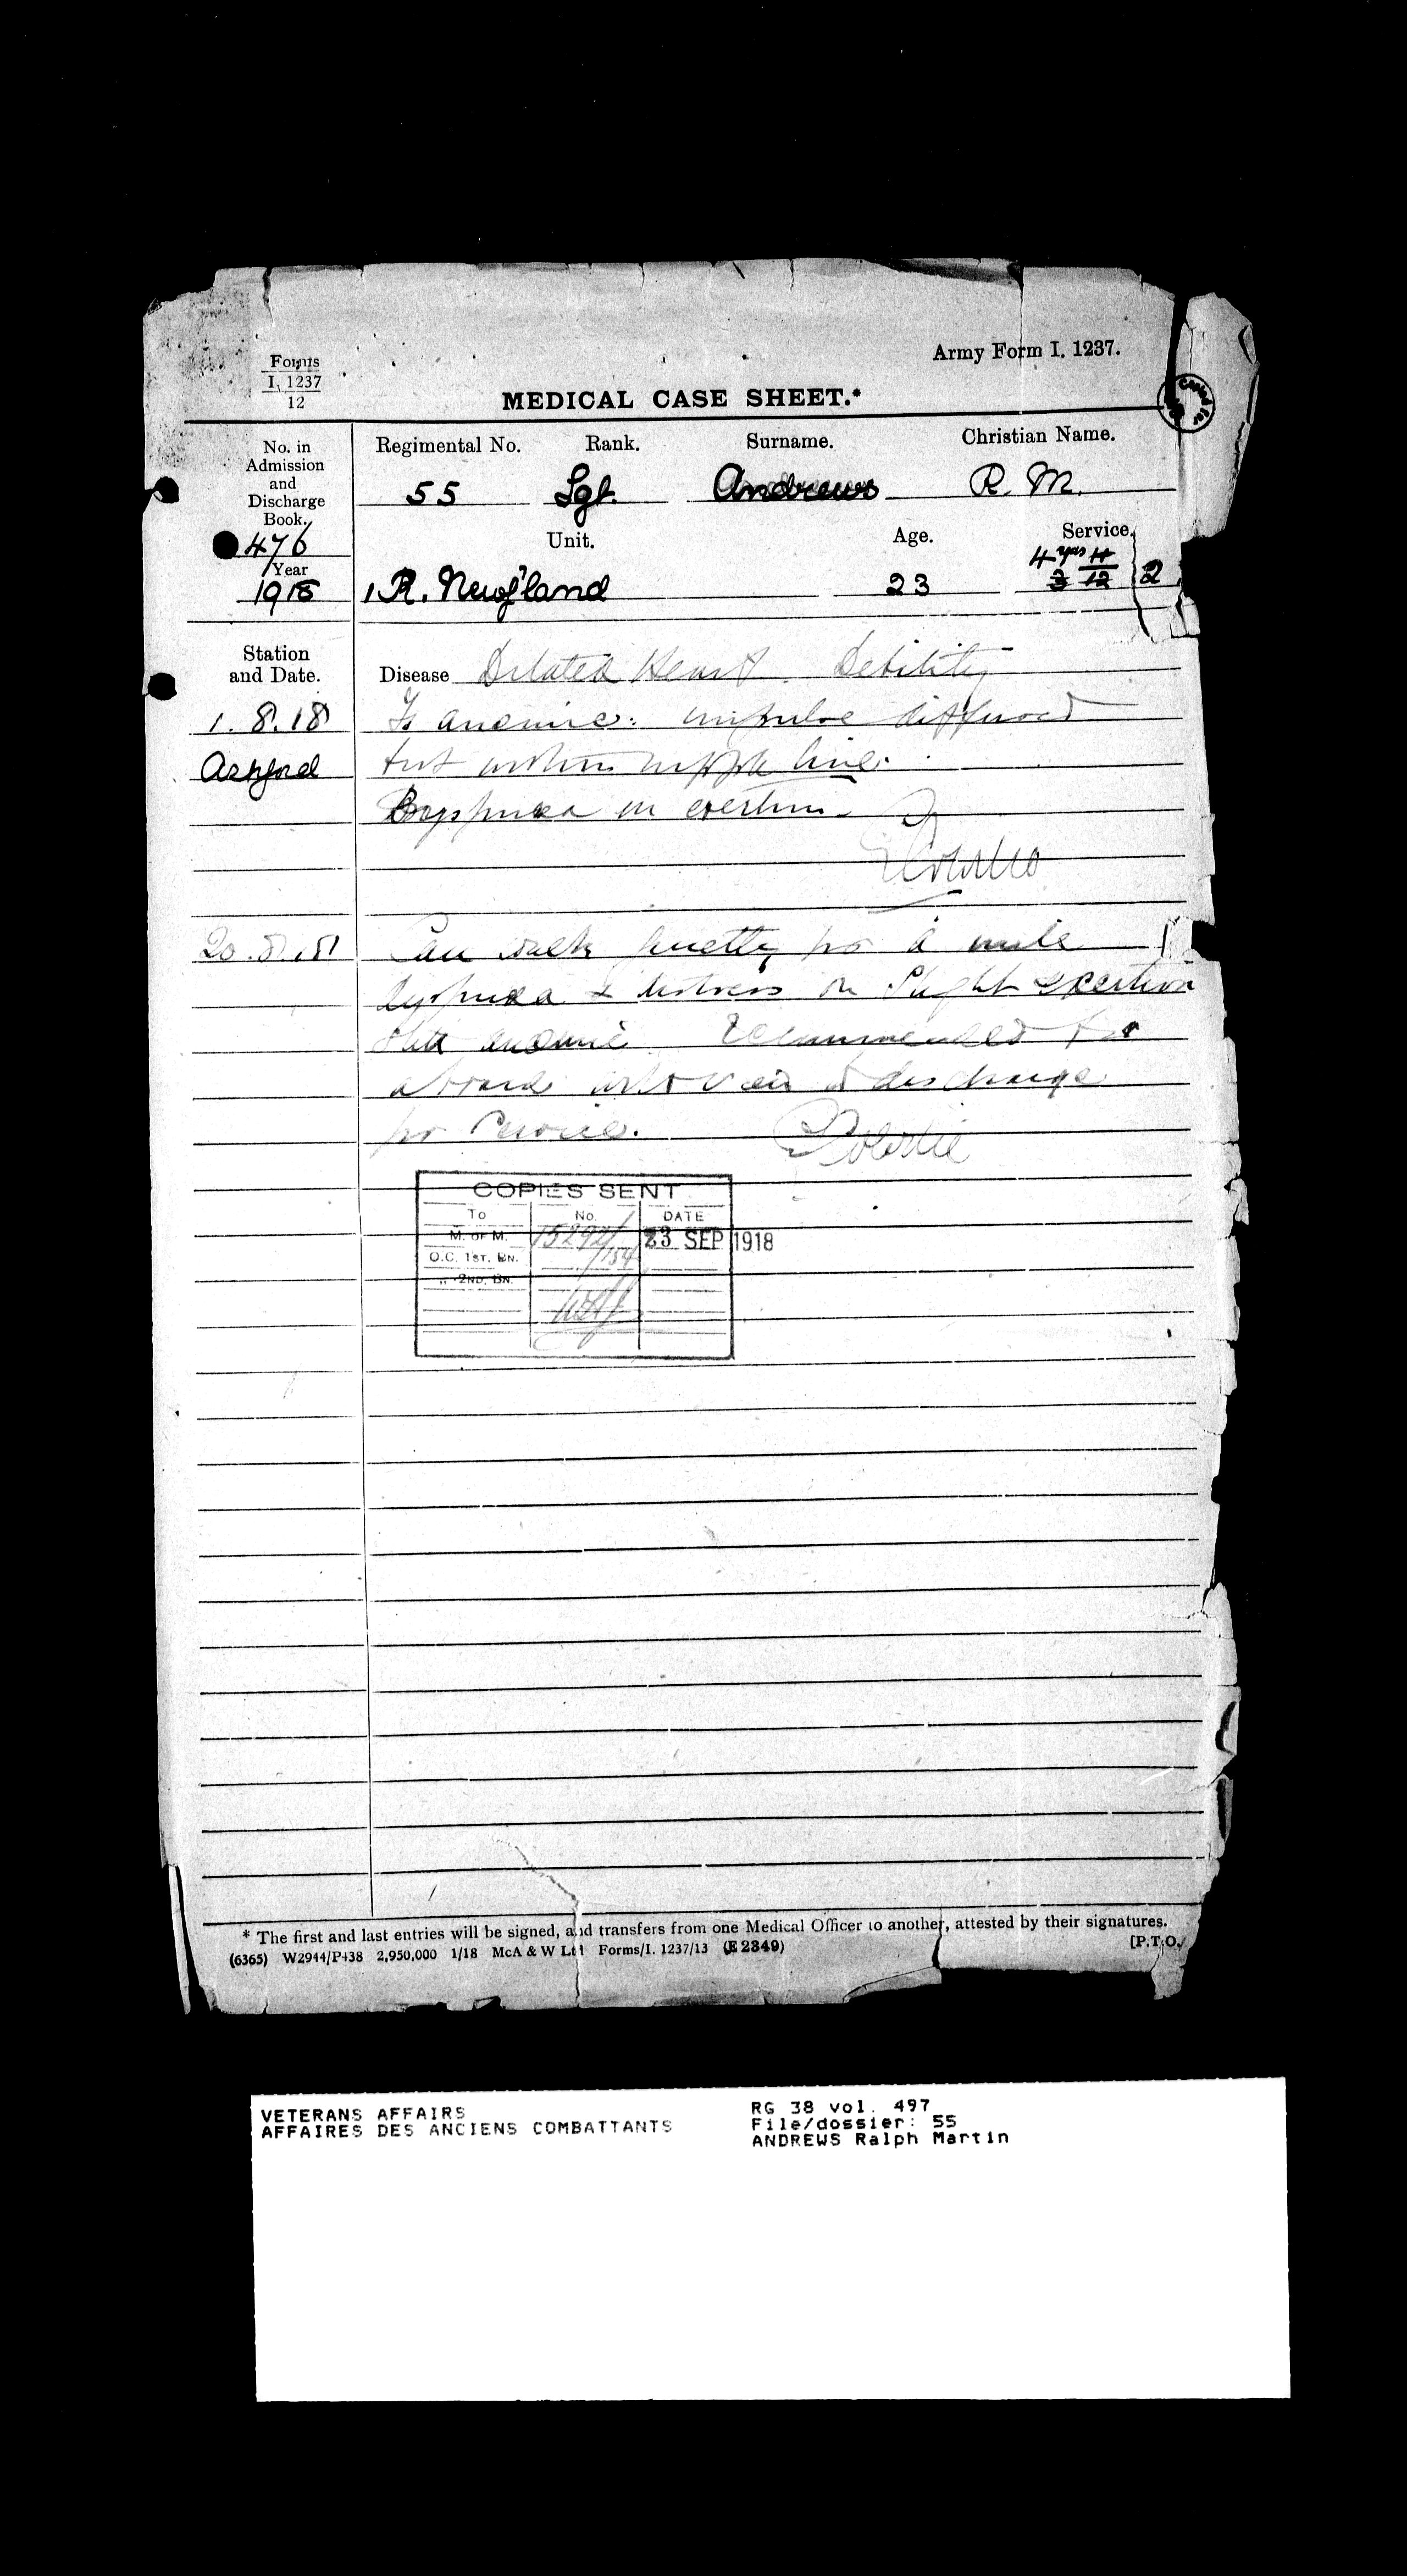 Forms
I. 1237
12
Army Form I. 1237.
MEDICAL CASE SHEET.*
No. in
Admission
and
Discharge
Book.
476
Year
1918
Regimental No. Rank. Surname. Christian Name.
55 Sgt. Andrews R. M.
Unit. Age. Service.
1 R. Newf'land 23 4 yrs
Station
and Date.
Disease Dilated Heart. Debility
1. 8. 18 Is anemic: impulse diffused
Ashford but within nipple line.
Dyspnea on exertion
20.8.18 Can walk quietly for a mile
dyspnea & distress on slight exertion
anemic Recommended for
a board with view to discharge
for service.
COPIES SENT
To No. DATE
M. OF M. 15292/ 23 SEP 1918
O.C. 1ST. BN. /154
" 2ND. BN.
* The first and last entries will be signed, and transfers from one Medical Officer to another, attested by their signatures.
(6365) W2944/P438 2,950,000 1/18 McA & W Ltd Forms/I. 1237/13 (E 2349) [P.T.O.
VETERANS AFFAIRS
AFFAIRES DES ANCIENS COMBATTANTS
RG 38 vol. 497
File/dossier: 55
ANDREWS Ralph Martin